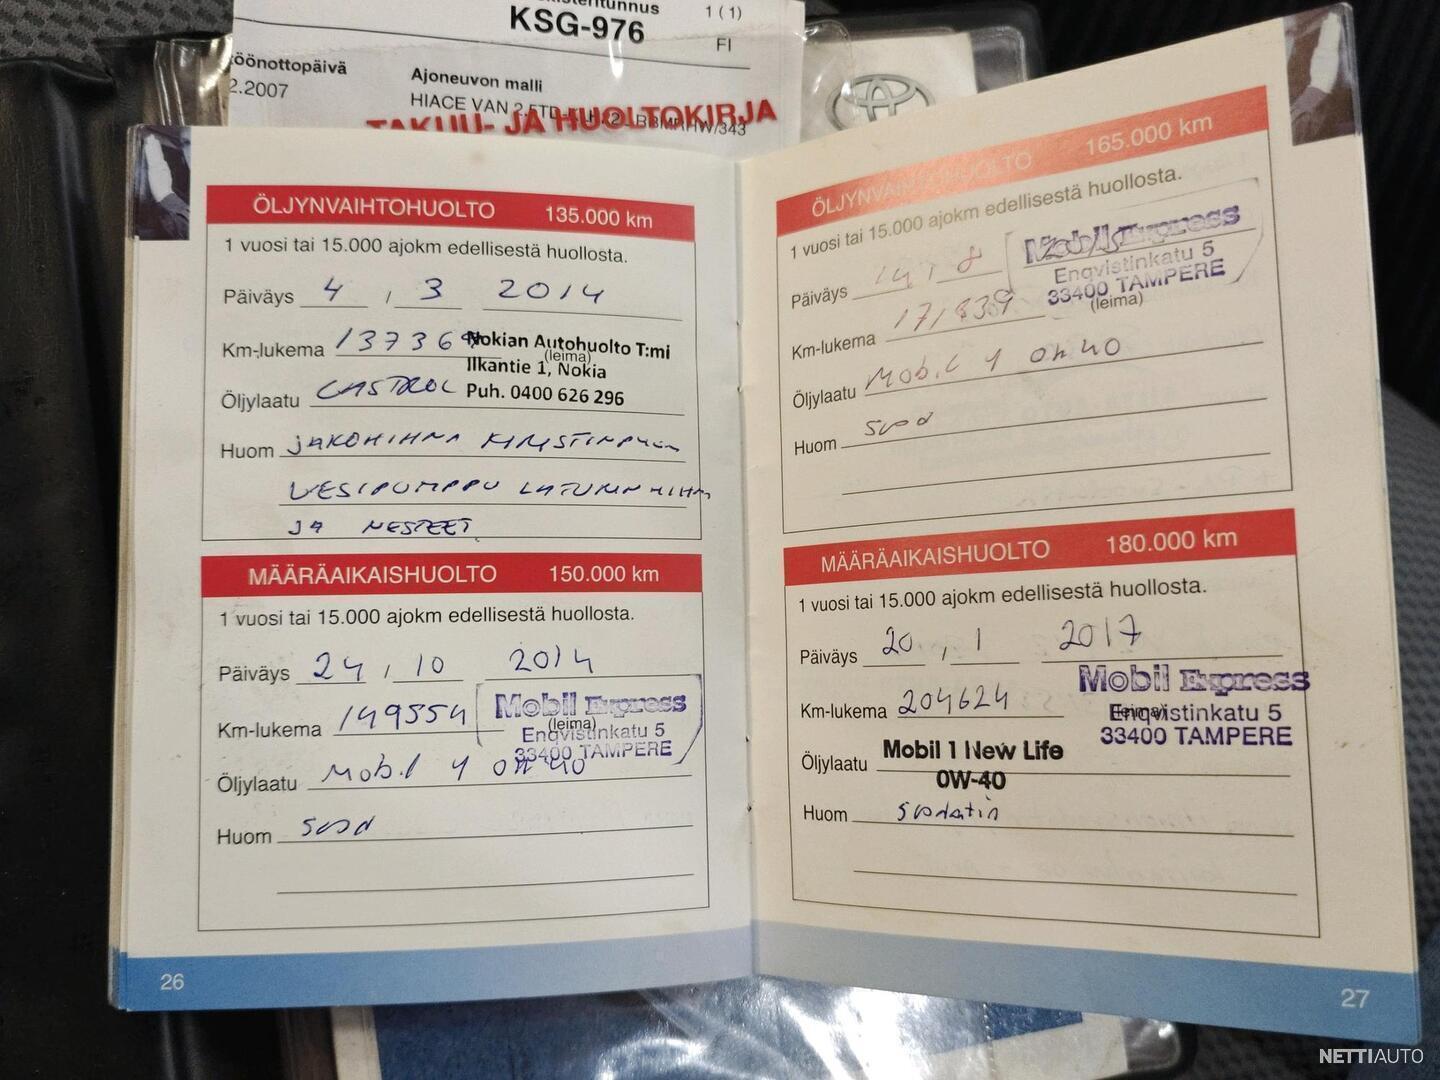 KSG-976
1 (1)
FI
öönottopäivä
2.2007
Ajoneuvon malli
HIACE VAN 2.5TD
/343
TAKUU- JA HUOLTOKIRJA
ÖLJYNVAIHTOHUOLTO 135.000 km
1 vuosi tai 15.000 ajokm edellisestä huollosta.
Päiväys 4 / 3 2014
Km-lukema 137369
Nokian Autohuolto T:mi
(leima)
Ilkantie 1, Nokia
Puh. 0400 626 296
Öljylaatu CASTROL
Huom JAKOHIHNA
VESIPUMPPU
JA NESTEET
MÄÄRÄAIKAISHUOLTO 150.000 km
1 vuosi tai 15.000 ajokm edellisestä huollosta.
Päiväys 24 / 10 2014
Km-lukema 149554
Mobil Express
(leima)
Enqvistinkatu 5
33400 TAMPERE
Öljylaatu Mobil 1 0W 40
Huom
26
ÖLJYNVAIHTOHUOLTO 165.000 km
1 vuosi tai 15.000 ajokm edellisestä huollosta.
Päiväys 14 / 8
Mobil Express
Enqvistinkatu 5
33400 TAMPERE
(leima)
Km-lukema 171839
Öljylaatu Mobil 1 0W 40
Huom
MÄÄRÄAIKAISHUOLTO 180.000 km
1 vuosi tai 15.000 ajokm edellisestä huollosta.
Päiväys 20 / 1 2017
Km-lukema 204624
Mobil Express
(leima)
Enqvistinkatu 5
33400 TAMPERE
Öljylaatu Mobil 1 New Life
0W-40
Huom suodatin
27
NETTIAUTO